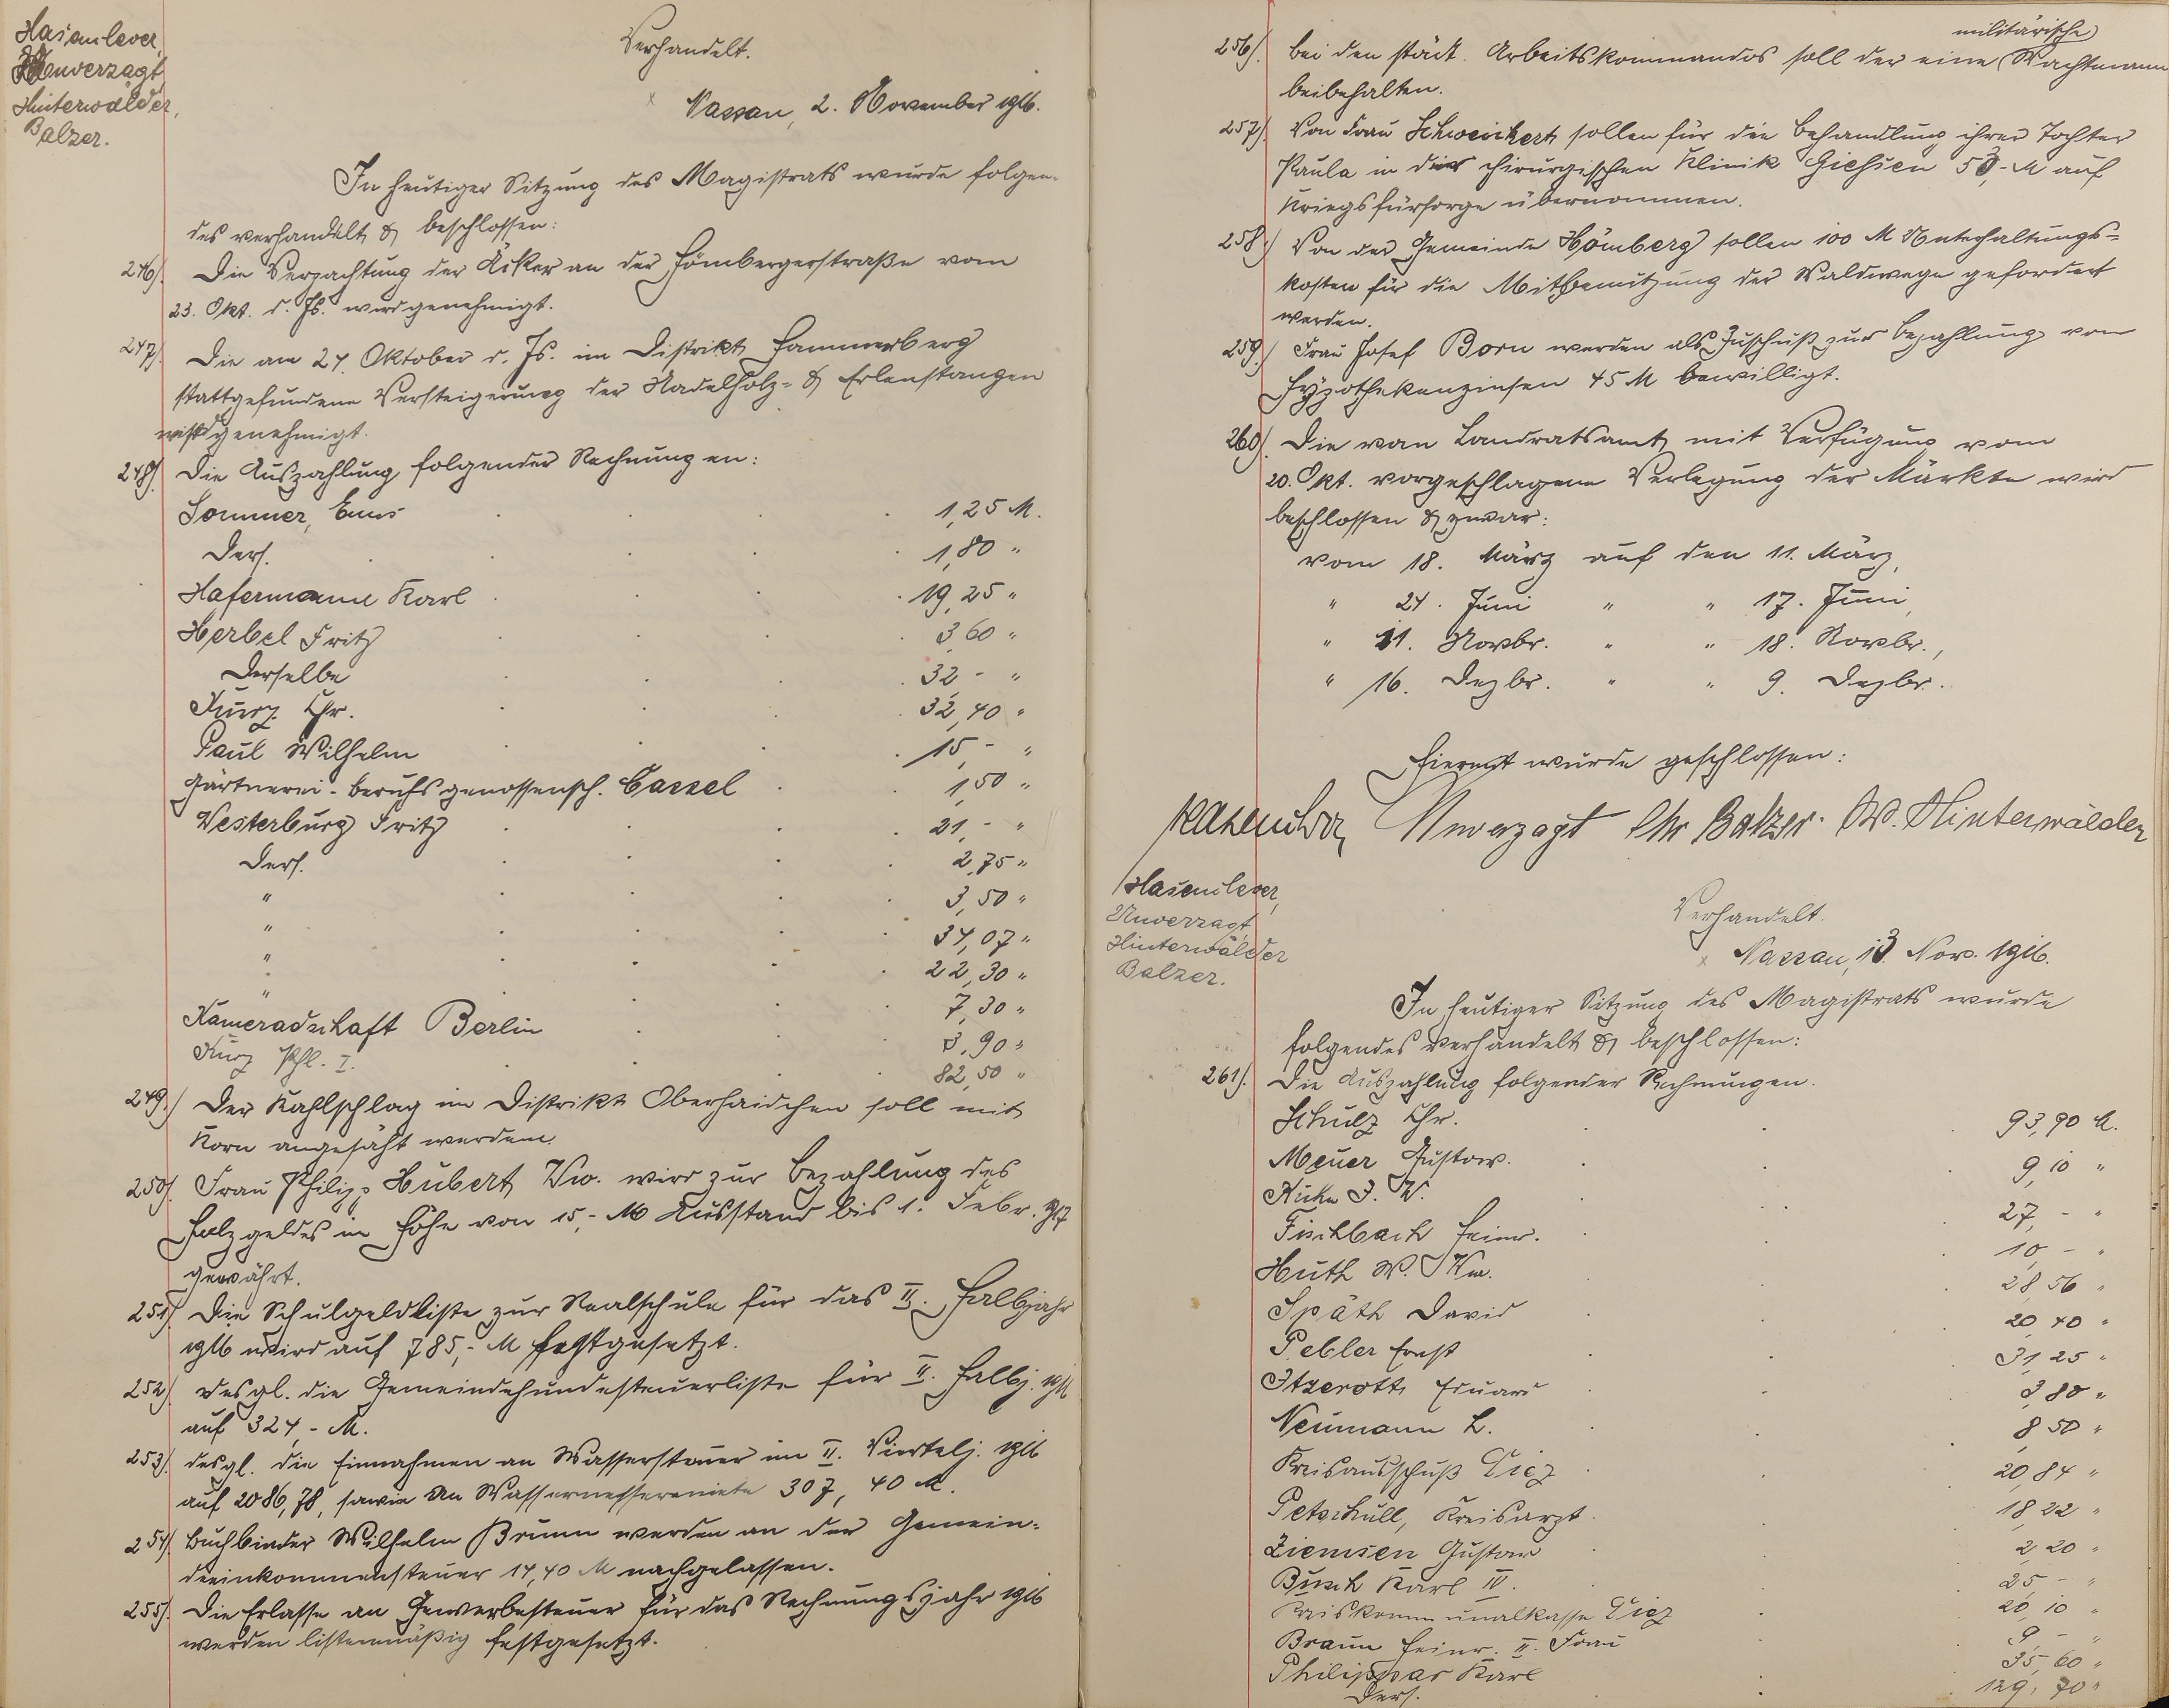 Hasenclever,
Unverzagt,
Hinterwälder,
Balzer.
Verhandelt.
Nassau, 2. November 1916.
In heutiger Sitzung des Magistrats wurde folgen-
des verhandelt & beschlossen:
246). Die Verpachtung der Äcker an der Hömbergerstraße vom
23. Okt. d. Js. wird genehmigt.
247). Die am 24. Oktober d. Js. im Distrikt Hammerberg
stattgefundene Versteigerung der Nadelholz- & Erlenstangen
wird genehmigt.
248). Die Auszahlung folgender Rechnungen:
Sommer, Ems 1,25 M.
Ders. 1,80 "
Hafermann Karl 19,25 "
Herbel Fritz 3,60 "
Derselbe 32,- "
Kurz Chr. 32,40 "
Paul Wilhelm 15,- "
Gärtnerei-Berufsgenossensch. Cassel 1,50 "
Westerburg Fritz 21,- "
Ders. 2,75 "
" 3,50 "
" 34,07 "
" 22,30 "
" 7,30 "
Kameradschaft Berlin 3,90 "
Kurz Phl. I. 82,50 "
249.) Der Kahlschlag im Distrikt Oberhaidchen soll mit
Korn angesäht werden.
250). Frau Philipp Hubert Ww. wird zur Bezahlung des
Holzgeldes in Höhe von 15,- M Ausstand bis 1. Febr. 1917
gewährt.
251). Die Schulgeldliste zur Realschule für das II. Halbjahr
1916 wird auf 785,- M festgesetzt.
252). desgl. die Gemeindehundesteuerliste für II. Halbj. 1916
auf 324,- M.
253). desgl. die Einnahmen an Wassersteuer im II. Viertelj. 1916
auf 2086,78, sowie an Wassermessermiete 307,40 M.
254). Buchbinder Wilhelm Brunn werden an der Gemein-
deeinkommensteuer 14,40 M nachgelassen.
255). Die Erlasse an Gewerbesteuer für das Rechnungsjahr 1916
werden listenmäßig festgesetzt.
militärische
256). Bei den städt. Arbeitskommandos soll der eine Wachtmann
beibehalten.
257). Von Frau Schweickert sollen für die Behandlung ihrer Tochter
Paula in der chirurgischen Klinik Giehsen 50,- M auf
Kriegsfürsorge übernommen.
258.) Von der Gemeinde Hömberg sollen 100 M Unterhaltungs-
kosten für die Mitbenutzung der Waldwege gefordert
werden.
259.) Frau Josef Born werden als Zuschuß zur Bezahlung von
Hypothekenzinsen 45 M bewilligt.
260). Die vom Landratsamt mit Verfügung vom
20. Okt. vorgeschlagene Verlegung der Märkte wird
beschlossen & zwar:
vom 18. März auf den 11. März,
" 24. Juni " " 17. Juni,
" 11. Novbr. " " 18. Novbr.,
" 16. Dezbr. " " 9. Dezbr.
Hiermit wurde geschlossen:
Hasenclever Unverzagt Chr Balzer. W. Hinterwälder
Hasenclever,
Unverzagt,
Hinterwälder
Balzer.
Verhandelt.
Nassau, 13. Nov. 1916.
In heutiger Sitzung des Magistrats wurde
folgendes verhandelt & beschlossen:
261). Die Auszahlung folgender Rechnungen.
Schulz Chr. 93,90 M.
Meuer Gustav. 9,10 "
Kuhn J. W. 27,- "
Fischbach Heinr. 10,- "
Huth W. Ww. 28,56 "
Späth David 20,40 "
Pebler Ernst 31,25 "
Itzerott Eduard 3,80 "
Neumann L. 8,50 "
Kreisausschuß Diez 20,84 "
Petschull, Kreisarzt 18,22 "
Ziemsen Gustav 2,20 "
Busch Karl IV. 25,- "
Kreiskommunalkasse Diez 20,10 "
Braun Heinr. II. Frau 9,- "
Philippar Karl 35,60 "
Ders. 129,70 "